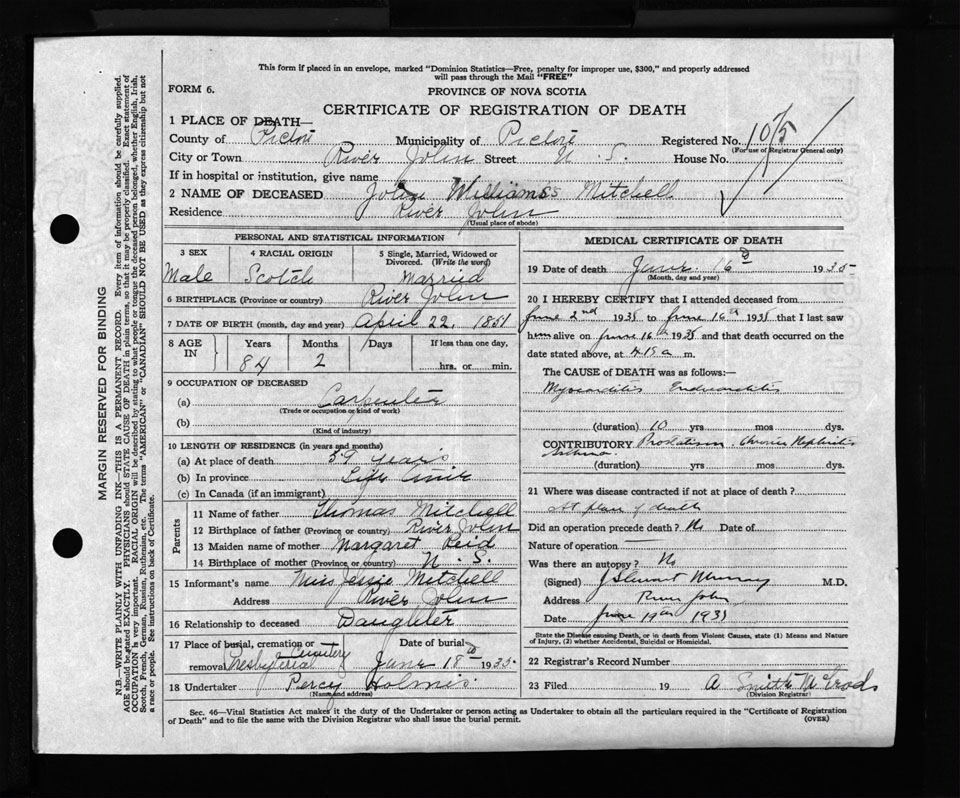 This form if placed in an envelope, marked "Dominion Statistics—Free, penalty for improper use, $300," and properly addressed
will pass through the Mail "FREE"
FORM 6.
PROVINCE OF NOVA SCOTIA
CERTIFICATE OF REGISTRATION OF DEATH
1 PLACE OF DEATH—
County of Pictou Municipality of Pictou Registered No. 1075
(For use of Registrar General only)
City or Town River John Street N. S. House No.
If in hospital or institution, give name
2 NAME OF DECEASED John Williams Mitchell
Residence River John
(Usual place of abode)
PERSONAL AND STATISTICAL INFORMATION
3 SEX 4 RACIAL ORIGIN 5 Single, Married, Widowed or Divorced. (Write the word)
Male Scotch Married
6 BIRTHPLACE (Province or country) River John
7 DATE OF BIRTH (month, day and year) April 22, 1851
8 AGE IN Years Months Days If less than one day,
84 2 hrs. or min.
9 OCCUPATION OF DECEASED
(a) Carpenter
(Trade or occupation or kind of work)
(b)
(Kind of industry)
10 LENGTH OF RESIDENCE (in years and months)
(a) At place of death 59 years
(b) In province Life time
(c) In Canada (if an immigrant)
Parents
11 Name of father Thomas Mitchell
12 Birthplace of father (Province or country) River John
13 Maiden name of mother Margaret Reid
14 Birthplace of mother (Province or country) N. S.
15 Informant's name Miss Jessie Mitchell
Address River John
16 Relationship to deceased Daughter
17 Place of burial, cremation or removal Presbyterial Cemetery Date of burial June 18th 1935
18 Undertaker Percy Holmes
(Name and address)
MEDICAL CERTIFICATE OF DEATH
19 Date of death June 16th 1935
(Month, day and year)
20 I HEREBY CERTIFY that I attended deceased from
June 2nd 1935 to June 16th 1935 that I last saw
him alive on June 16th 1935 and that death occurred on the
date stated above, at 4.15 a m.
The CAUSE OF DEATH was as follows:—
Myocarditis Endocarditis
(duration) 10 yrs mos dys.
CONTRIBUTORY Chronic Nephritis
(duration) yrs mos dys.
21 Where was disease contracted if not at place of death?
At place of death
Did an operation precede death? No Date of
Nature of operation —
Was there an autopsy? No
(Signed) J Stewart Murray M.D.
Address River John
Date June 17th 1935
State the Disease causing Death, or in death from Violent Causes, state (1) Means and Nature
of Injury, (2) whether Accidental, Suicidal or Homicidal.
22 Registrar's Record Number
23 Filed 19 A Smith
(Division Registrar)
Sec. 46—Vital Statistics Act makes it the duty of the Undertaker or person acting as Undertaker to obtain all the particulars required in the "Certificate of Registration
of Death" and to file the same with the Division Registrar who shall issue the burial permit.
(OVER)
MARGIN RESERVED FOR BINDING
N.B.—WRITE PLAINLY WITH UNFADING INK—THIS IS A PERMANENT RECORD. Every item of information should be carefully supplied.
AGE should be stated EXACTLY. PHYSICIANS should STATE CAUSE OF DEATH in plain terms, so that it may be properly classified. Exact statement of
OCCUPATION is very important. RACIAL ORIGIN will be described by stating to what people or tongue the deceased person belonged, whether English, Irish,
Scotch, French, German, Russian, Ruthenian, etc. The terms "AMERICAN" or "CANADIAN" SHOULD NOT BE USED as they express citizenship but not
a race or people. See instructions on back of Certificate.